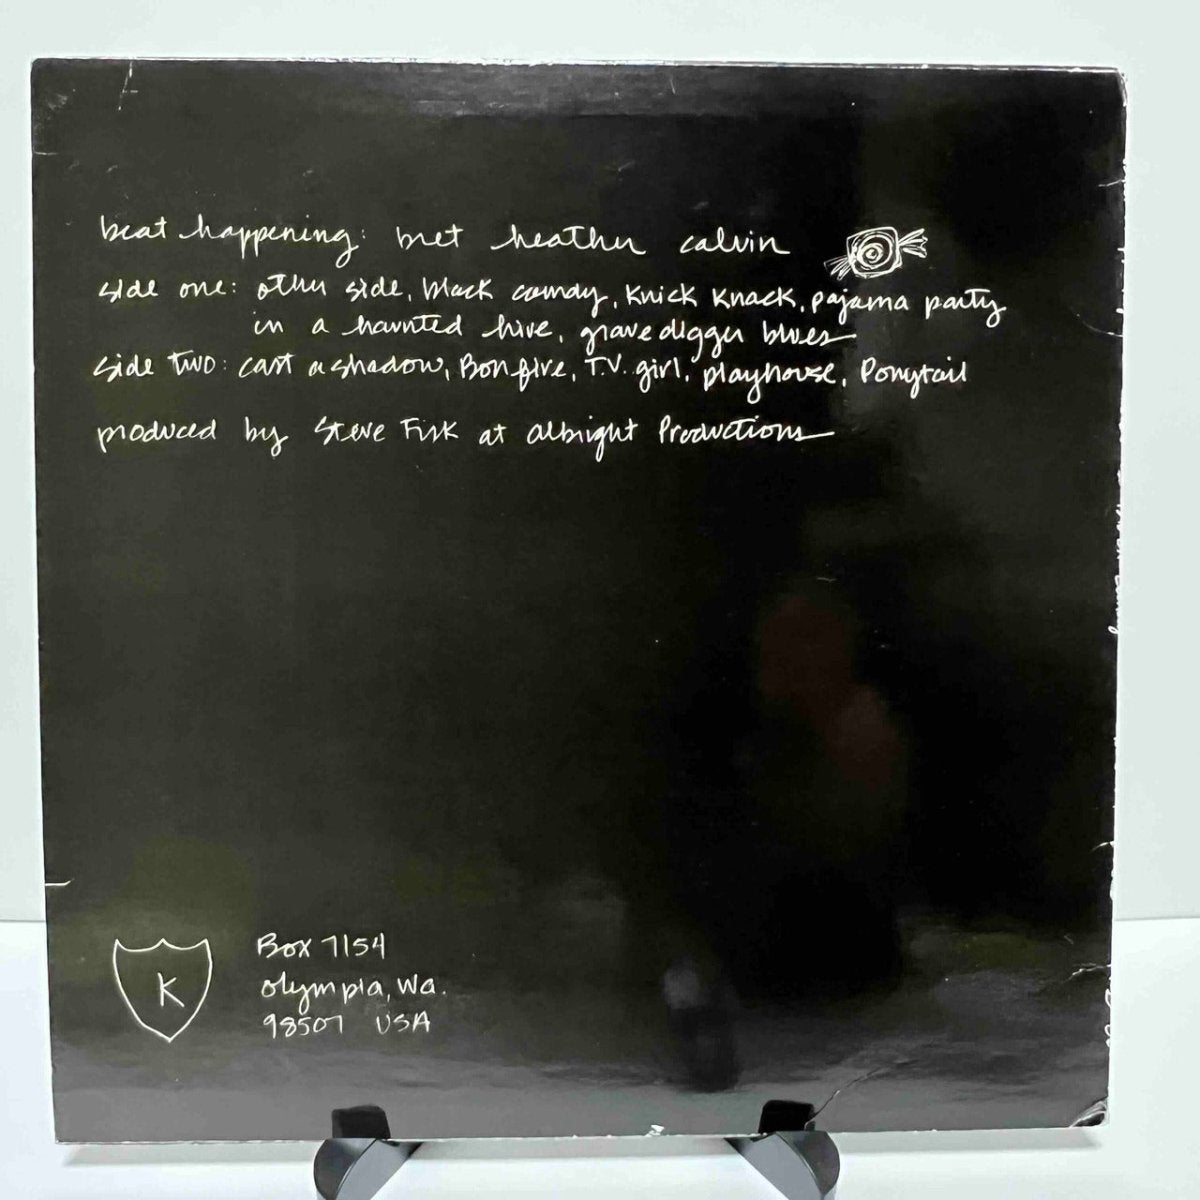 beat happening: bret heather calvin
side one: other side, black candy, Knick Knack, pajama party
in a haunted hive, gravedigger blues
side two: cast a shadow, Bonfire, T.V. girl, playhouse, Ponytail
produced by Steve Fisk at albright Productions
K
Box 7154
olympia, Wa.
98507 USA